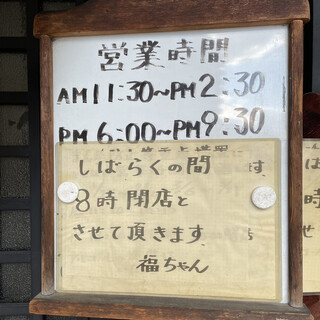 営業時間
AM11:30~PM2:30
PM6:00~PM9:30
しばらくの間
8時閉店と
させて頂きます
福ちゃん